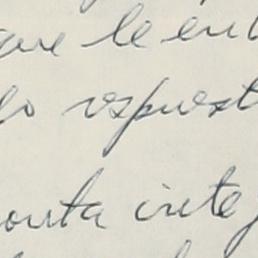 que le en
lo respuest
onta inte